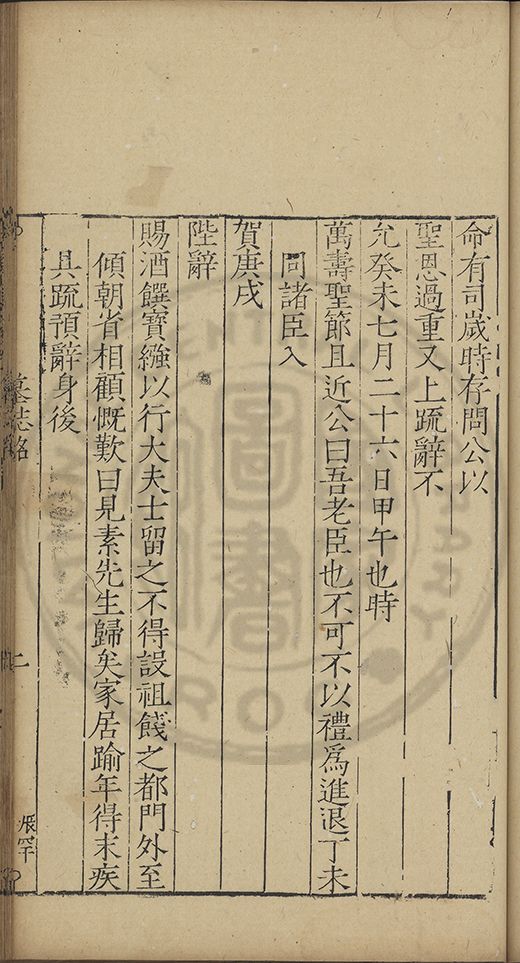 命有司歲時存問公以
聖恩過重又上疏辭不
允癸未七月二十六日甲午也時
萬壽聖節且近公曰吾老臣也不可不以禮爲進退丁未
同諸臣入
賀庚戌
陛辭
賜酒饌寶繦以行大夫士留之不得設祖餞之都門外至
傾朝省相顧慨歎曰見素先生歸矣家居踰年得末疾
具疏預辭身後
墓誌銘
二
張罕